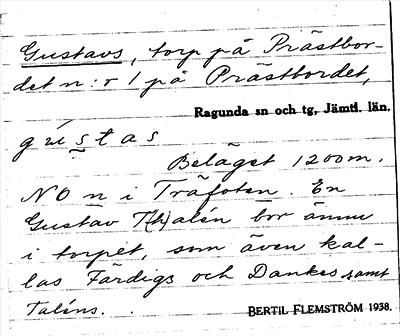 Gustavs, torp på Prästbor-
det n:r 1 på Prästbordet,
Ragunda sn och tg, Jämtl. län.
gu̍stas
Beläget 1200 m.
NO n i Träfoten. En
Gustav T(h)alén bor ännu
i torpet, som även kal-
las Färdigs och Dankes samt
Taléns.
BERTIL FLEMSTRÖM 1938.